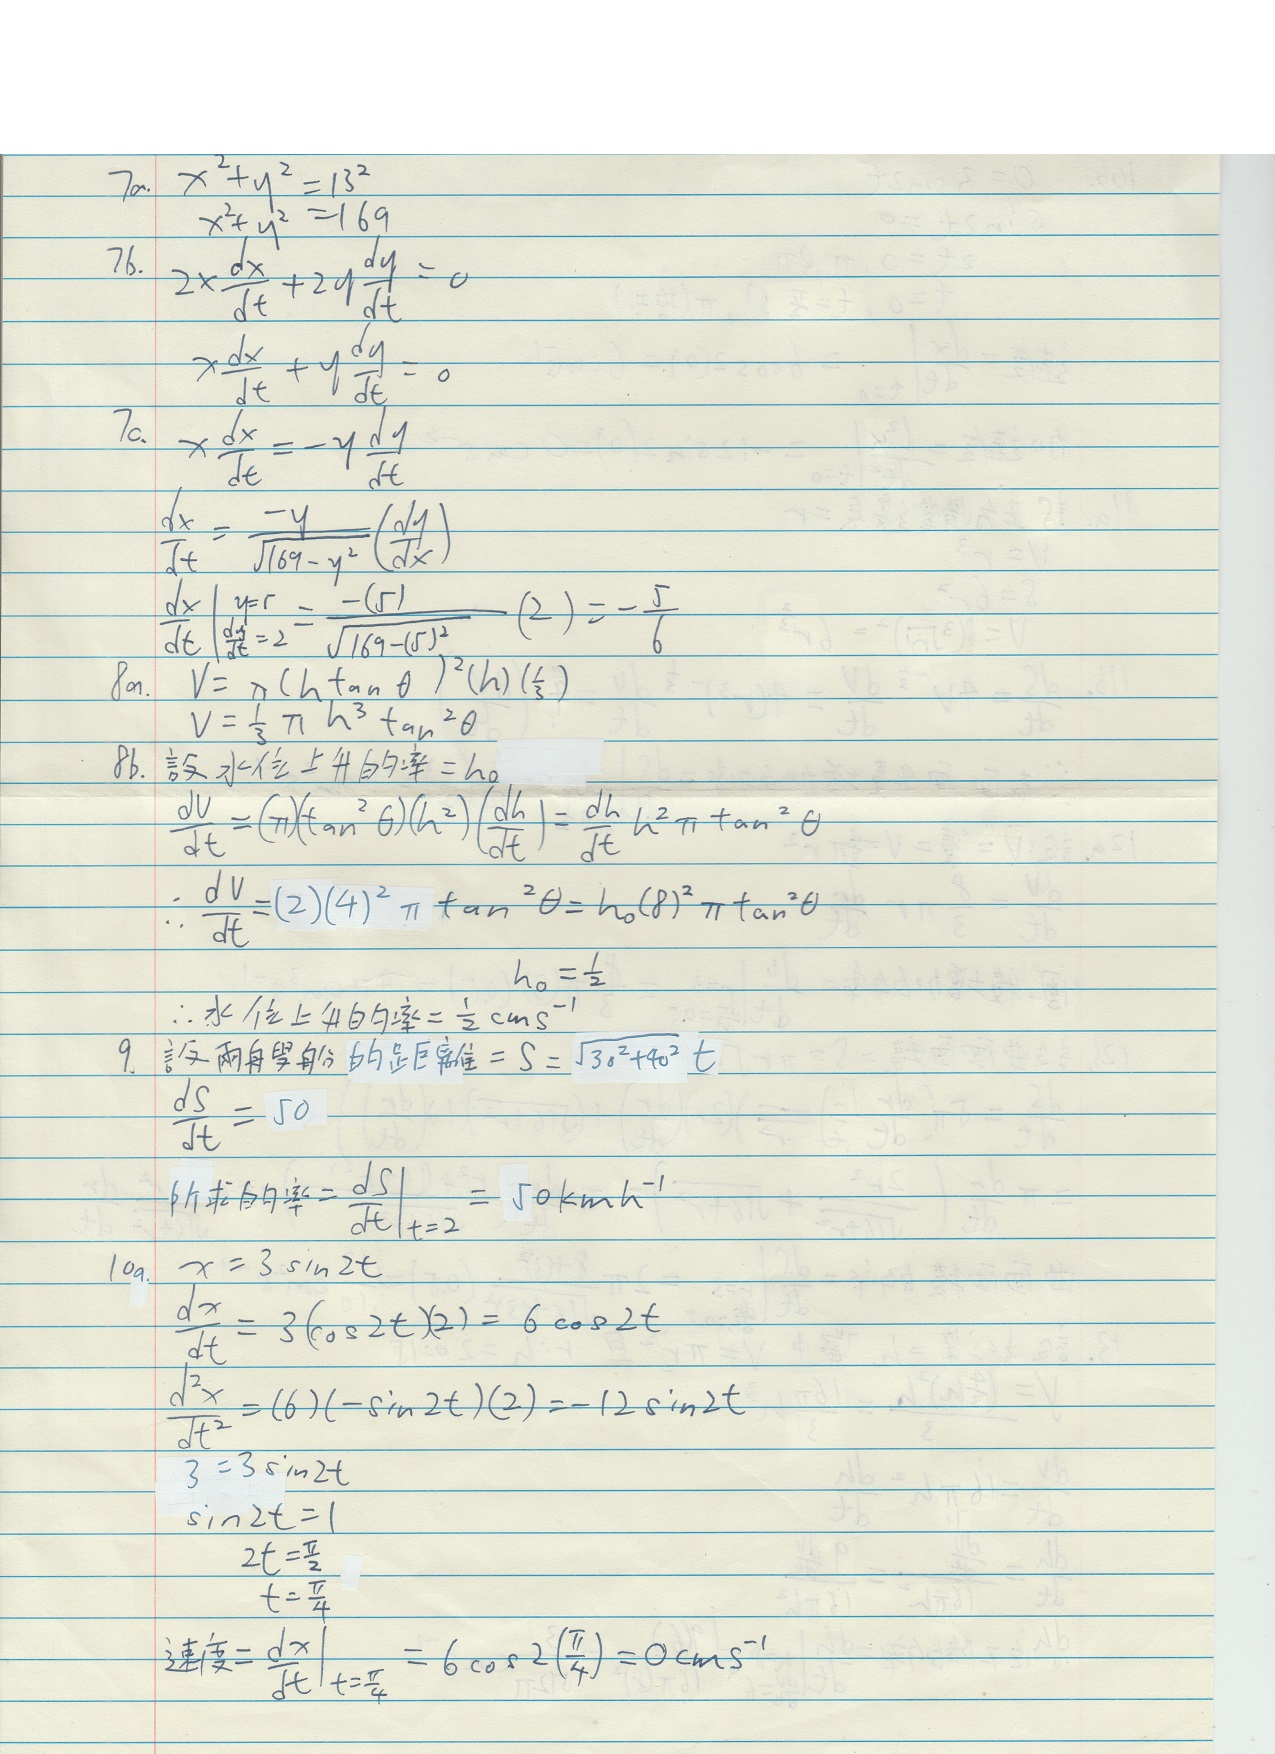 7a. x²+y²=13²
x²+y²=169
7b. 2x dx/dt + 2y dy/dt = 0
x dx/dt + y dy/dt = 0
7c. x dx/dt = -y dy/dt
dx/dt = -y/√(169-y²) (dy/dx)
dx/dt | y=5, dy/dt=2 = -(5)/√(169-(5)²) (2) = -5/6
8a. V = π(h tan θ)²(h)(1/3)
V = 1/3 π h³ tan²θ
8b. 設水位上升的率=h₀
dV/dt = (π)(tan²θ)(h²)(dh/dt) = dh/dt h² π tan²θ
∴ dV/dt = (2)(4)² π tan²θ = h₀(8)² π tan²θ
h₀ = 1/2
∴水位上升的率 = 1/2 cm s⁻¹
9. 設兩船的距離 = S = √(30²+40²) t
dS/dt = 50
所求的率 = dS/dt | t=2 = 50 km h⁻¹
10a. x = 3 sin 2t
dx/dt = 3(cos 2t)(2) = 6 cos 2t
d²x/dt² = (6)(-sin 2t)(2) = -12 sin 2t
3 = 3 sin 2t
sin 2t = 1
2t = π/2
t = π/4
速度 = dx/dt | t=π/4 = 6 cos 2(π/4) = 0 cm s⁻¹